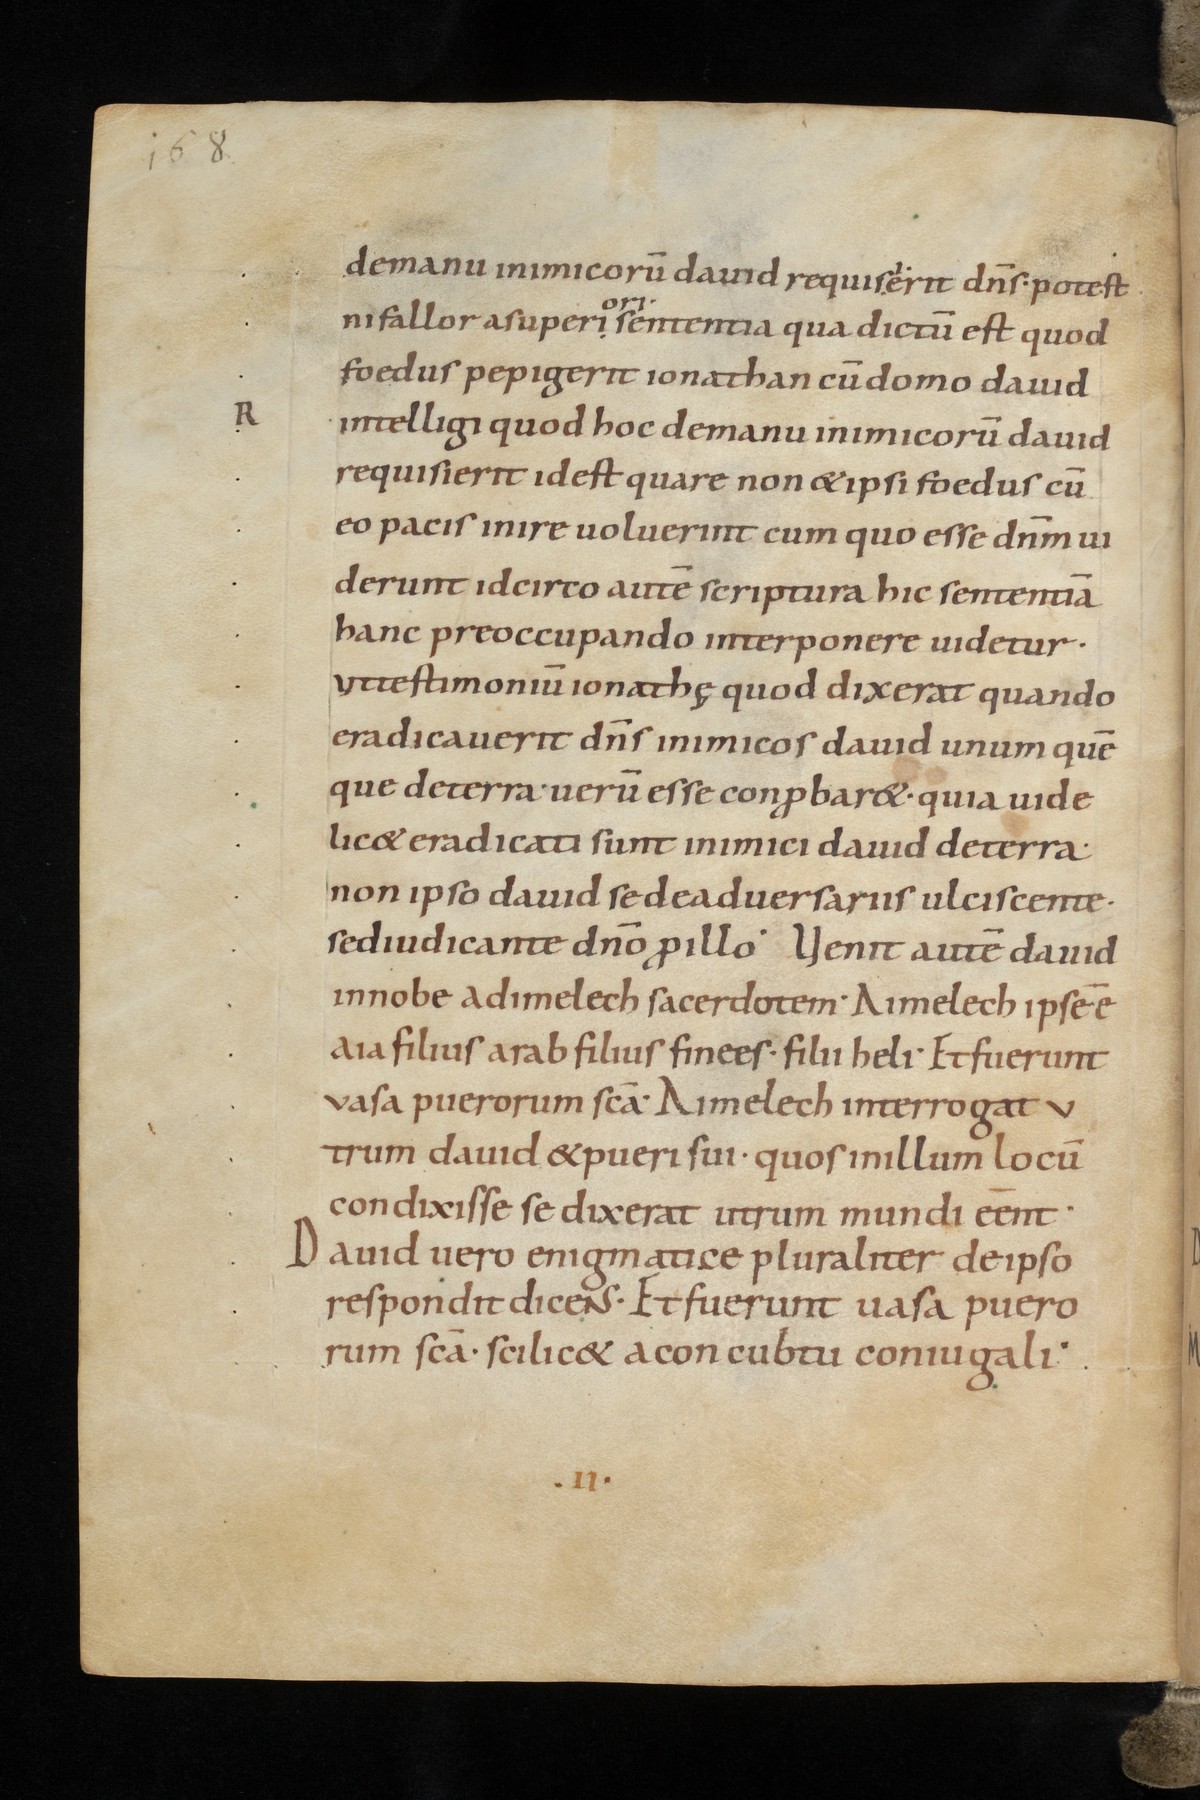 168
demanu inimicorū dauid requisierit dn̄s· potest
nifallor asuperiori· sententia qua dictū est quod
foedus pepigerit ionathan cū domo dauid
R
intelligi quod hoc demanu inimicorū dauid
requisierit idest quare non &ipsi foedus cū
eo pacis inire uoluerint cum quo esse dn̄m ui
derunt idcirco autē scriptura hic sententiā
hanc preoccupando interponere uidetur·
vttestimoniū ionathę quod dixerat quando
eradicauerit dn̄s inimicos dauid unum quē
que deterra· uerū esse conꝓbar&· quia uide
lic& eradicati sunt inimici dauid deterra·
non ipso dauid se deaduersariis ulciscente·
sediudicante dn̄o ꝓillo· Uenit autē dauid
innobe adimelech sacerdotem· Aimelech ipse ē
aia filius arab filius finees· filii heli· Et fuerunt
vasa puerorum scā· Aimelech interrogat v
trum dauid &pueri sui· quos inillum locū
condixisse se dixerat utrum mundi eēnt·
Dauid uero enigmatice pluraliter deipso
respondit dicens· Et fuerunt uasa puero
rum scā· scilic& aconcubtu coniugali·
·II·